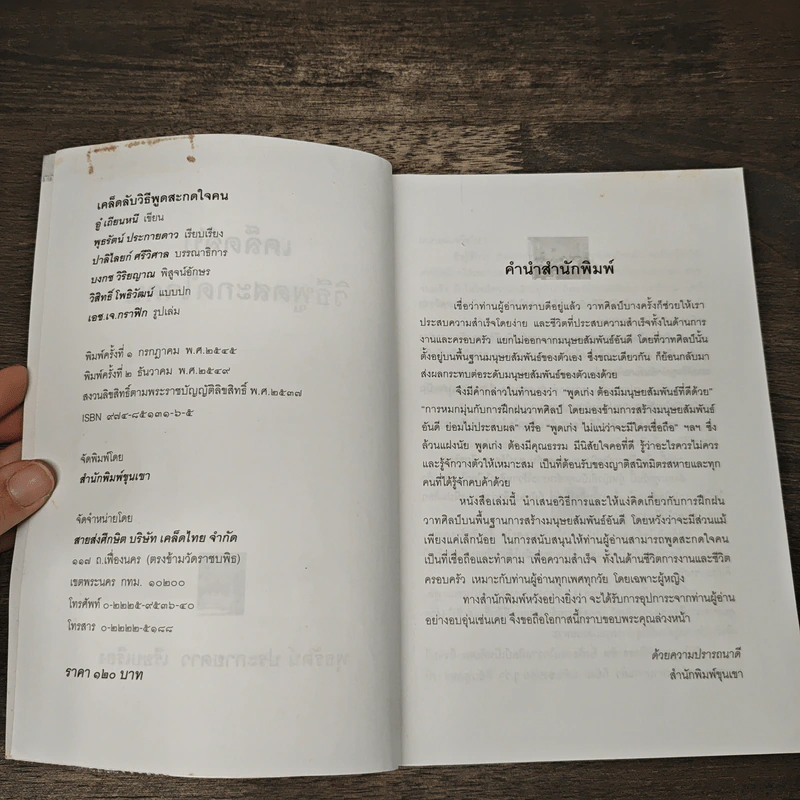 เคล็ดลับวิธีพูดสะกดใจคน
อู๋ เถียนหนี เขียน
พุธรัตน์ ประกายดาว เรียบเรียง
ปาลิไลยก์ ศรีวิศาล บรรณาธิการ
บงกช วิริยญาณ พิสูจน์อักษร
วิสิทธิ์ โพธิวัฒน์ แบบปก
เอช.เจ.กราฟิก รูปเล่ม
พิมพ์ครั้งที่ ๑ กรกฎาคม พ.ศ.๒๕๔๕
พิมพ์ครั้งที่ ๒ ธันวาคม พ.ศ.๒๕๔๙
สงวนลิขสิทธิ์ตามพระราชบัญญัติลิขสิทธิ์ พ.ศ.๒๕๓๗
ISBN ๙๗๔-๘๕๑๓๑-๖-๕
จัดพิมพ์โดย
สำนักพิมพ์ขุนเขา
จัดจำหน่ายโดย
สายส่งศึกษิต บริษัท เคล็ดไทย จำกัด
๑๑๘ ถ.เฟื่องนคร (ตรงข้ามวัดราชบพิธ)
เขตพระนคร กทม. ๑๐๒๐๐
โทรศัพท์ ๐-๒๒๒๕-๙๕๓๖-๔๐
โทรสาร ๐-๒๒๒๒-๕๑๘๘
ราคา ๑๒๐ บาท
คำนำสำนักพิมพ์
เชื่อว่าท่านผู้อ่านทราบดีอยู่แล้ว วาทศิลป์บางครั้งก็ช่วยให้เรา
ประสบความสำเร็จโดยง่าย และชีวิตที่ประสบความสำเร็จทั้งในด้านการ
งานและครอบครัว แยกไม่ออกจากมนุษยสัมพันธ์อันดี โดยที่วาทศิลป์นั้น
ตั้งอยู่บนพื้นฐานมนุษยสัมพันธ์ของตัวเอง ซึ่งขณะเดียวกัน ก็ย้อนกลับมา
ส่งผลกระทบต่อระดับมนุษยสัมพันธ์ของตัวเองด้วย
จึงมีคำกล่าวในทำนองว่า "พูดเก่ง ต้องมีมนุษยสัมพันธ์ที่ดีด้วย"
"การหมกมุ่นกับการฝึกฝนวาทศิลป์ โดยมองข้ามการสร้างมนุษยสัมพันธ์
อันดี ย่อมไม่ประสบผล" หรือ "พูดเก่ง ไม่แน่ว่าจะมีใครเชื่อถือ" ฯลฯ ซึ่ง
ล้วนแฝงนัย พูดเก่ง ต้องมีคุณธรรม มีนิสัยใจคอที่ดี รู้ว่าอะไรควรไม่ควร
และรู้จักวางตัวให้เหมาะสม เป็นที่ต้อนรับของญาติสนิทมิตรสหายและทุก
คนที่ได้รู้จักคบค้าด้วย
หนังสือเล่มนี้ นำเสนอวิธีการและให้แง่คิดเกี่ยวกับการฝึกฝน
วาทศิลป์บนพื้นฐานการสร้างมนุษยสัมพันธ์อันดี โดยหวังว่าจะมีส่วนแม้
เพียงแค่เล็กน้อย ในการสนับสนุนให้ท่านผู้อ่านสามารถพูดสะกดใจคน
เป็นที่เชื่อถือและทำตาม เพื่อความสำเร็จ ทั้งในด้านชีวิตการงานและชีวิต
ครอบครัว เหมาะกับท่านผู้อ่านทุกเพศทุกวัย โดยเฉพาะผู้หญิง
ทางสำนักพิมพ์หวังอย่างยิ่งว่า จะได้รับการอุปการะจากท่านผู้อ่าน
อย่างอบอุ่นเช่นเคย จึงขอถือโอกาสนี้กราบขอบพระคุณล่วงหน้า
ด้วยความปรารถนาดี
สำนักพิมพ์ขุนเขา